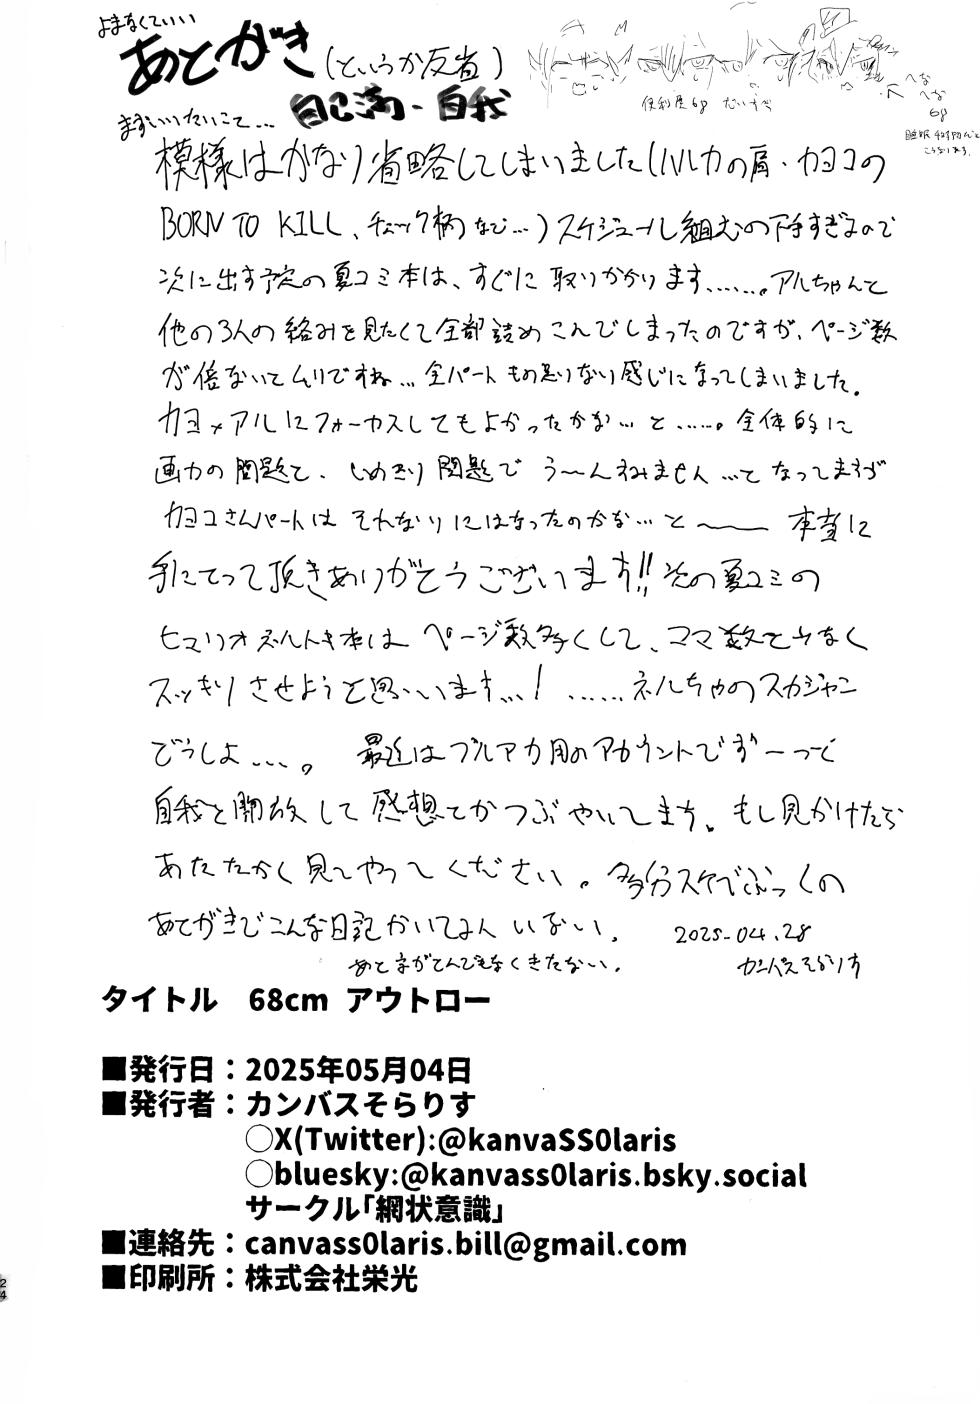 よまなくていい
あとがき(というか反省)
自己満・自我
便利屋68 だいすき
へな
へな
68
まずいいたいこと…
模様はかなり省略してしまいました(ハルカの肩・カヨコの
BORN TO KILL、チェック柄など…)スケジュール組むの下手すぎるので
次に出す予定の夏コミ本は、すぐに取りかかります……。アルちゃんと
他の3人の絡みを見たくて全部詰めこんでしまったのですが、ページ数
が倍ないとムリですね…全パートもの足りない感じになってしまいました。
カヨ×アルにフォーカスしてもよかったかな…と……。全体的に
画力の問題と、しめきり問題でう〜んすみません…となってますが
カヨコさんパートはそれなりにはなったのかな…と〜 本当に
手にとって頂きありがとうございます!!次の夏コミの
ヒマリオネルトキ本はページ数多くして、コマ数を少なく
スッキリさせようと思います…!……ネルちゃのスカジャン
どうしよ…。 最近はブルアカ用のアカウントでずーっと
自我を開放して感想とかつぶやいてます。もし見かけたら
あたたかく見てやってください。多分スケベぶっくの
あとがきでこんな日記かいてる人いない。
2025.04.28
あと字がとんでもなくきたない。
カンバスそらりす
タイトル 68cm アウトロー
■発行日：2025年05月04日
■発行者：カンバスそらりす
○X(Twitter):@kanvaSS0laris
○bluesky:@kanvass0laris.bsky.social
サークル「網状意識」
■連絡先：canvass0laris.bill@gmail.com
■印刷所：株式会社栄光
24